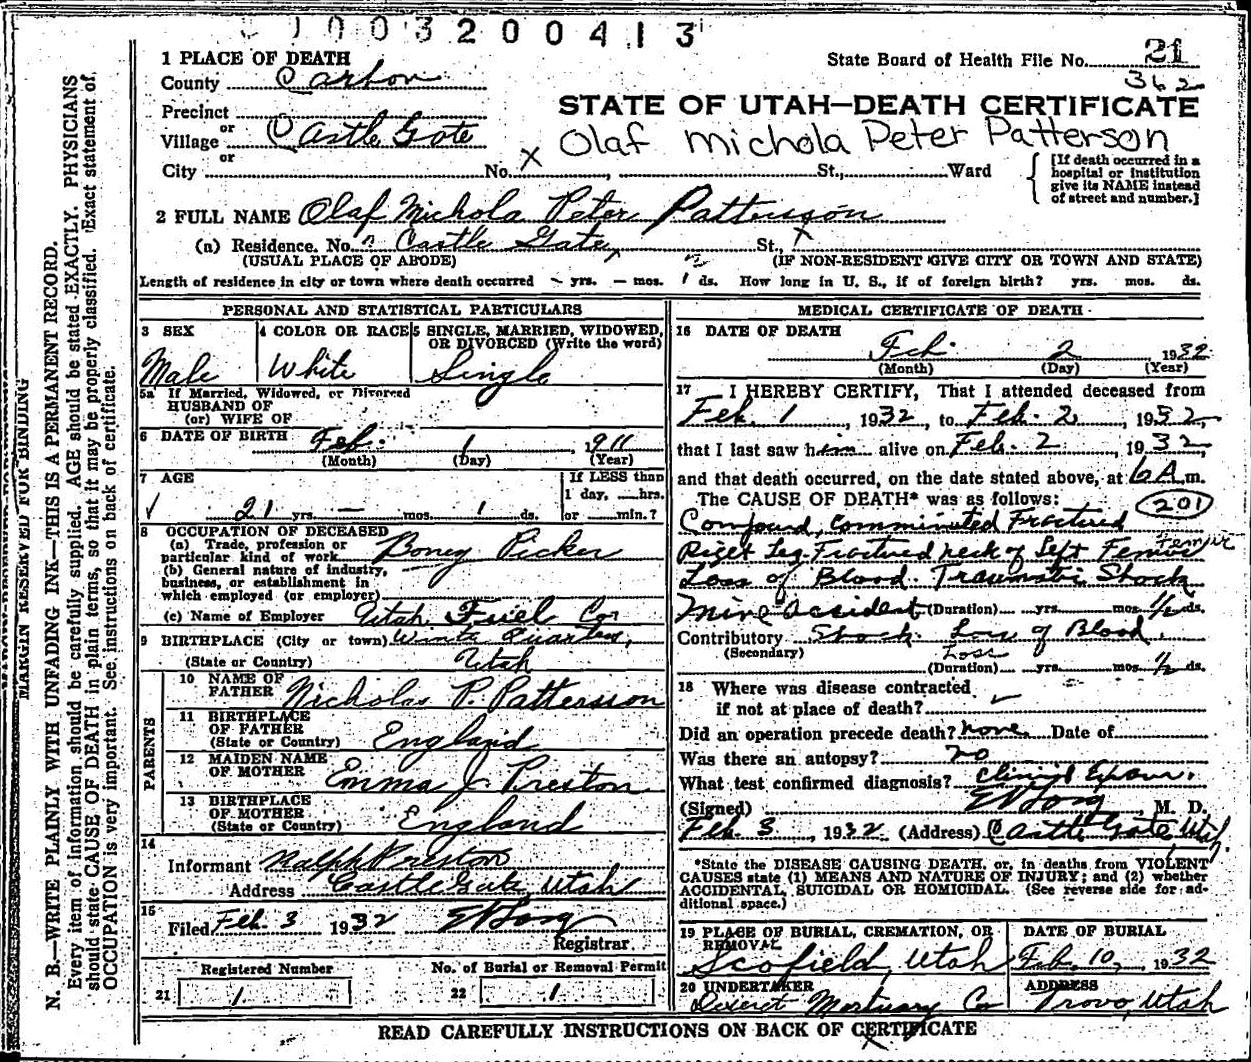 1003200413
1 PLACE OF DEATH
State Board of Health File No. 21
County Carbon
362
Precinct
STATE OF UTAH—DEATH CERTIFICATE
or
Village Castle Gate
Olaf Michola Peter Patterson
or
City No. X , St., Ward
[If death occurred in a
hospital or institution
give its NAME instead
of street and number.]
2 FULL NAME Olaf Michola Peter Patterson
(a) Residence. No. Castle Gate St., X
(USUAL PLACE OF ABODE) (IF NON-RESIDENT GIVE CITY OR TOWN AND STATE)
Length of residence in city or town where death occurred – yrs. – mos. 1 ds. How long in U. S., if of foreign birth? yrs. mos. ds.
PERSONAL AND STATISTICAL PARTICULARS
3 SEX 4 COLOR OR RACE 5 SINGLE, MARRIED, WIDOWED,
OR DIVORCED (Write the word)
Male White Single
5a If Married, Widowed, or Divorced
HUSBAND OF
(or) WIFE OF
6 DATE OF BIRTH Feb. 1 1911
(Month) (Day) (Year)
7 AGE If LESS than
1 day, hrs.
21 yrs. — mos. 1 ds. or min.?
8 OCCUPATION OF DECEASED
(a) Trade, profession or
particular kind of work Boney Picker
(b) General nature of industry,
business, or establishment in
which employed (or employer)
(c) Name of Employer Utah Fuel Co
9 BIRTHPLACE (City or town) Winter Quarters,
(State or Country) Utah
PARENTS
10 NAME OF
FATHER Nicholas P. Patterson
11 BIRTHPLACE
OF FATHER
(State or Country) England
12 MAIDEN NAME
OF MOTHER Emma J. Preston
13 BIRTHPLACE
OF MOTHER
(State or Country) England
14
Informant Ralph Preston
Address Castle Gate, Utah
15
Filed Feb. 3 1932
Registrar.
Registered Number No. of Burial or Removal Permit
21 1 22 1
MEDICAL CERTIFICATE OF DEATH
16 DATE OF DEATH
Feb. 2 1932
(Month) (Day) (Year)
17 I HEREBY CERTIFY, That I attended deceased from
Feb. 1, 1932, to Feb. 2, 1932,
that I last saw him alive on Feb. 2, 1932,
and that death occurred, on the date stated above, at 6 A.m.
The CAUSE OF DEATH* was as follows: 201
Compound, Comminuted Fractured
Right Leg. Fractured neck of Left Femur Femur
Loss of Blood. Traumatic Shock
Mine accident (Duration) yrs. mos. 1/2 ds.
Contributory Shock. Loss of Blood.
(Secondary) Loss
(Duration) yrs. mos. 1/2 ds.
18 Where was disease contracted
if not at place of death?
Did an operation precede death? none. Date of
Was there an autopsy? no
What test confirmed diagnosis? Clinical Exam.
(Signed) M. D.
Feb. 3, 1932 (Address) Castle Gate, Utah.
*State the DISEASE CAUSING DEATH, or, in deaths from VIOLENT
CAUSES state (1) MEANS AND NATURE OF INJURY; and (2) whether
ACCIDENTAL, SUICIDAL OR HOMICIDAL. (See reverse side for ad-
ditional space.)
19 PLACE OF BURIAL, CREMATION, OR DATE OF BURIAL
REMOVAL
Scofield, Utah Feb. 10, 1932
20 UNDERTAKER ADDRESS
Deseret Mortuary Co Provo, Utah
READ CAREFULLY INSTRUCTIONS ON BACK OF CERTIFICATE
MARGIN RESERVED FOR BINDING
N. B.—WRITE PLAINLY WITH UNFADING INK—THIS IS A PERMANENT RECORD.
Every item of information should be carefully supplied. AGE should be stated EXACTLY. PHYSICIANS
should state CAUSE OF DEATH in plain terms, so that it may be properly classified. Exact statement of
OCCUPATION is very important. See instructions on back of certificate.